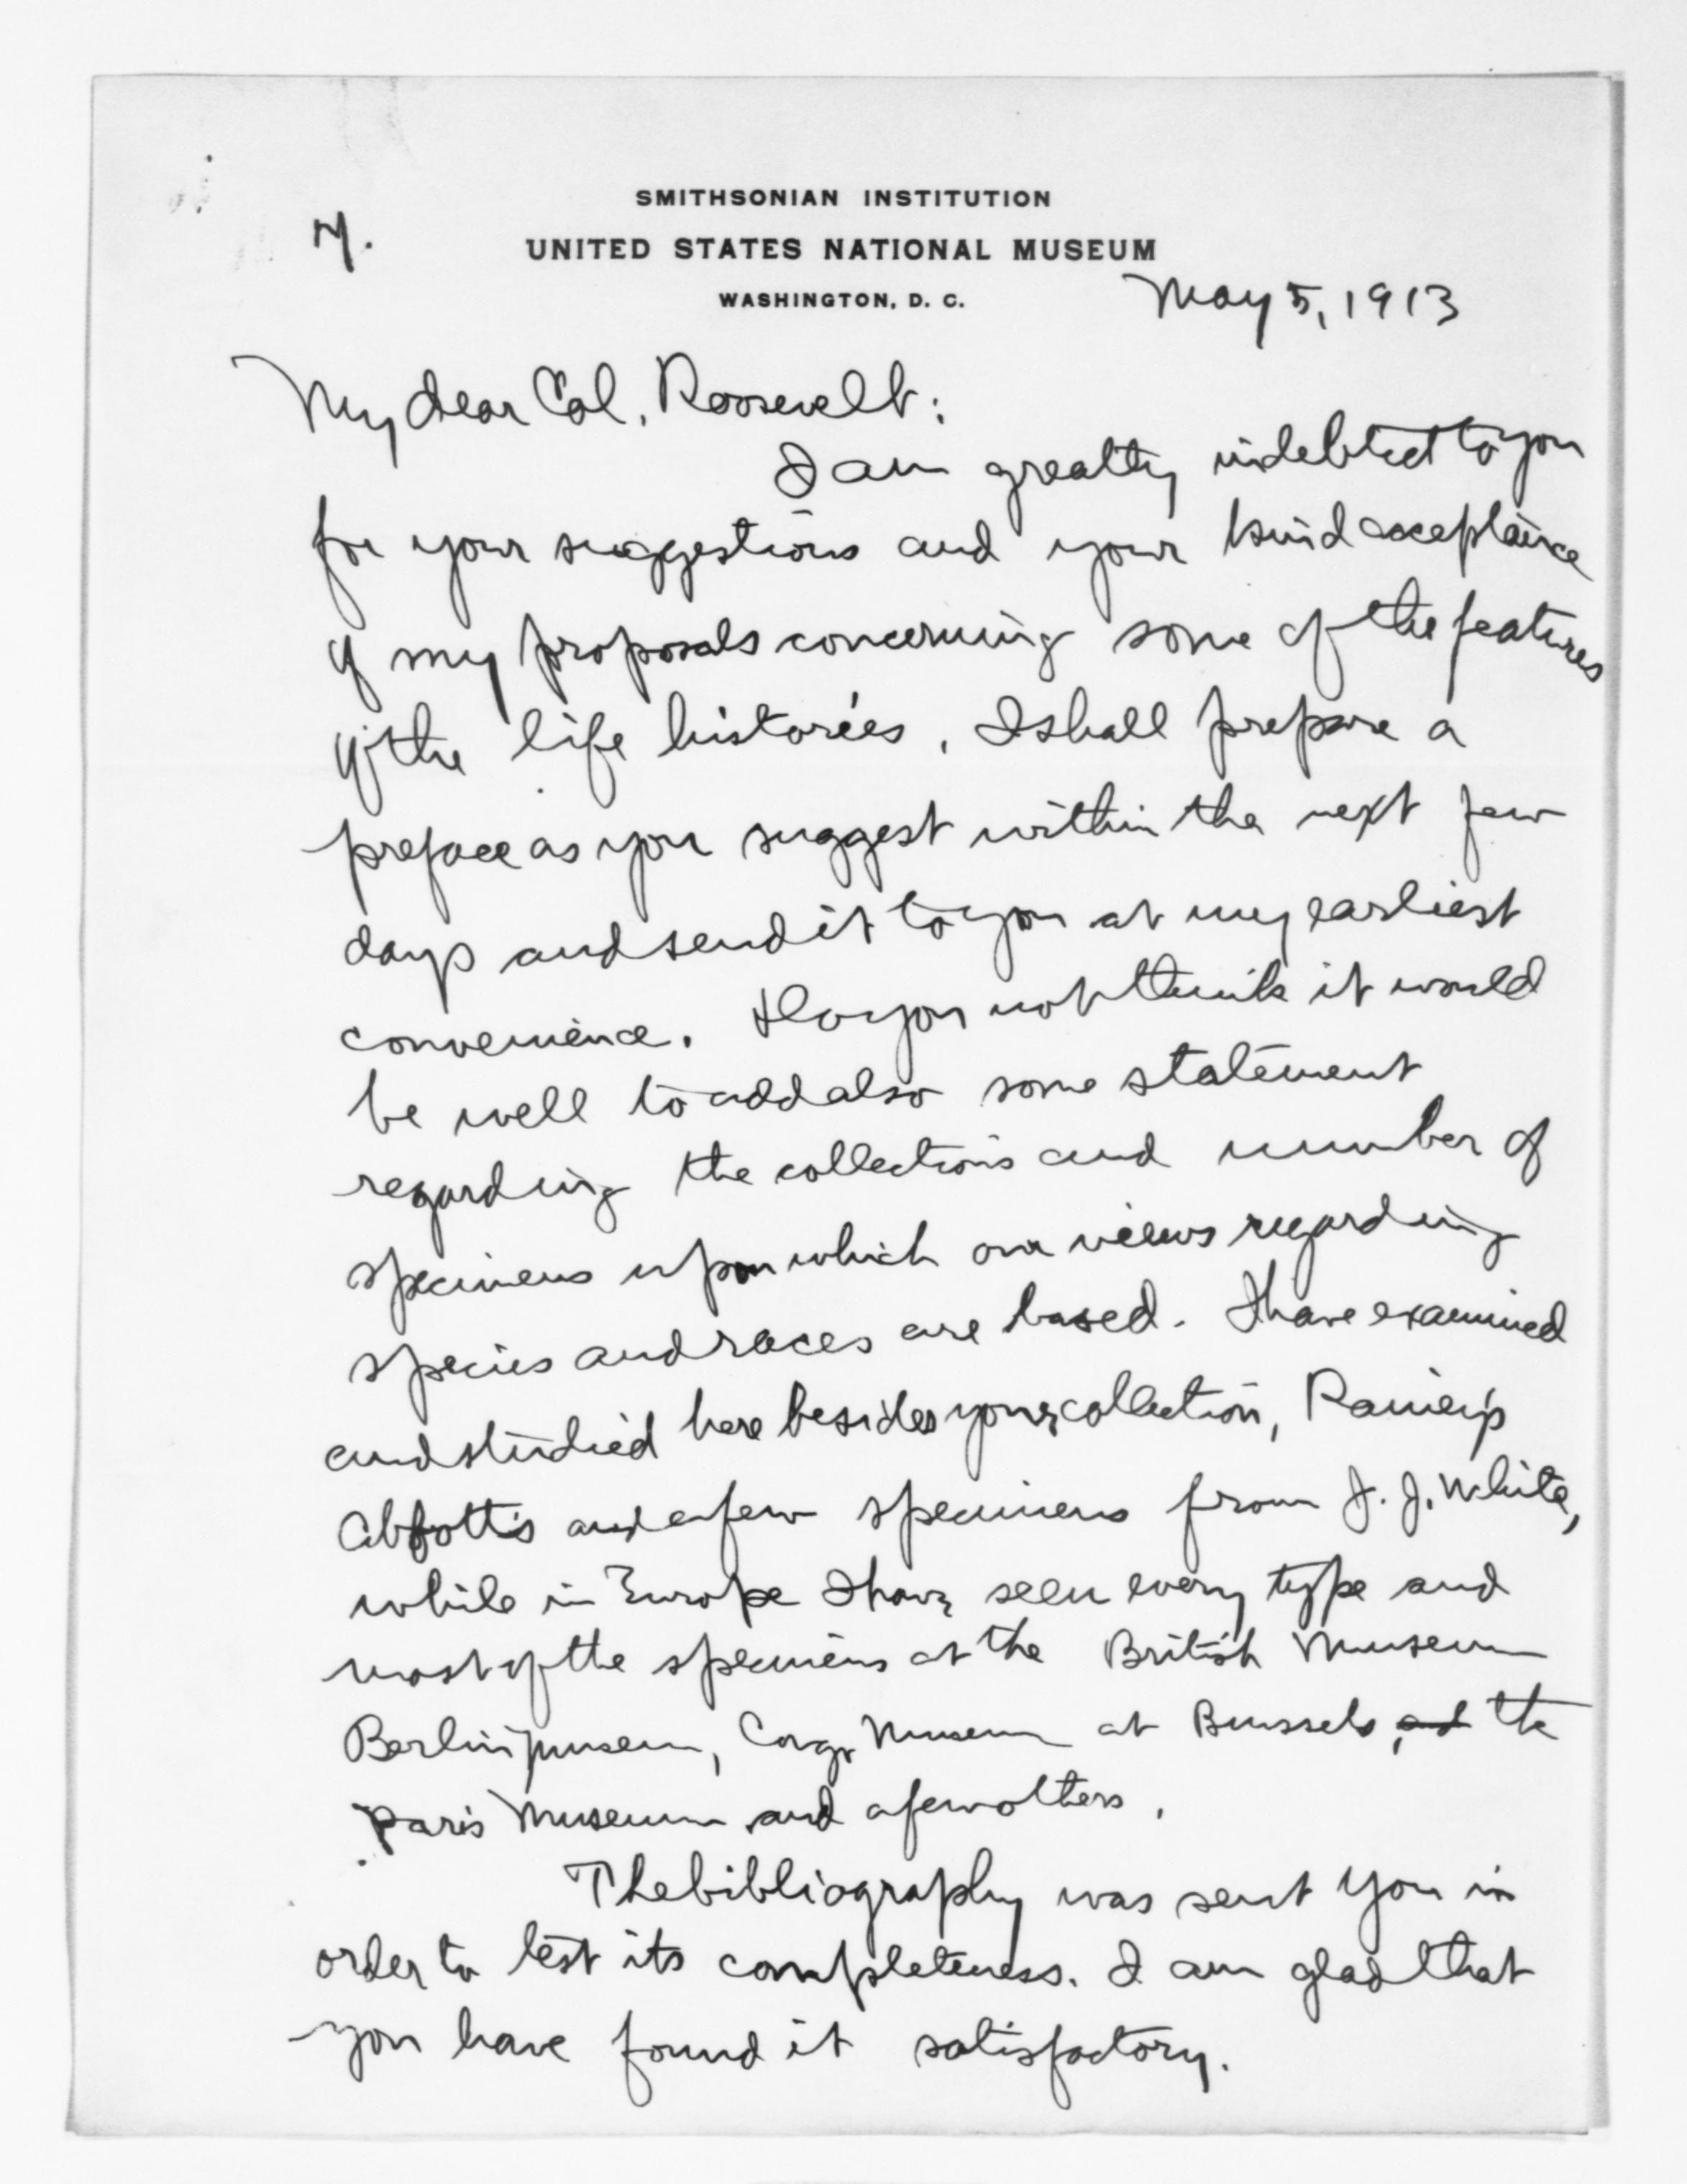 SMITHSONIAN INSTITUTION
UNITED STATES NATIONAL MUSEUM
WASHINGTON, D. C.
May 5, 1913
My dear Col. Roosevelt:
I am greatly indebted to you
for your suggestions and your kind acceptance
of my proposals concerning some of the features
of the life histories. I shall prepare a
preface as you suggest within the next few
days and send it to you at my earliest
convenience. Do you not think it would
be well to add also some statement
regarding the collections and number of
specimens upon which our views regarding
species and races are based. I have examined
and studied here besides your collection, Rainey's
Abbott's and a few specimens from J. J. White,
while in Europe I have seen every type and
most of the specimens at the British Museum
Berlin museum, Congo Museum at Brussels, and the
Paris Museum and a few others.
The bibliography was sent you in
order to test its completeness. I am glad that
you have found it satisfactory.